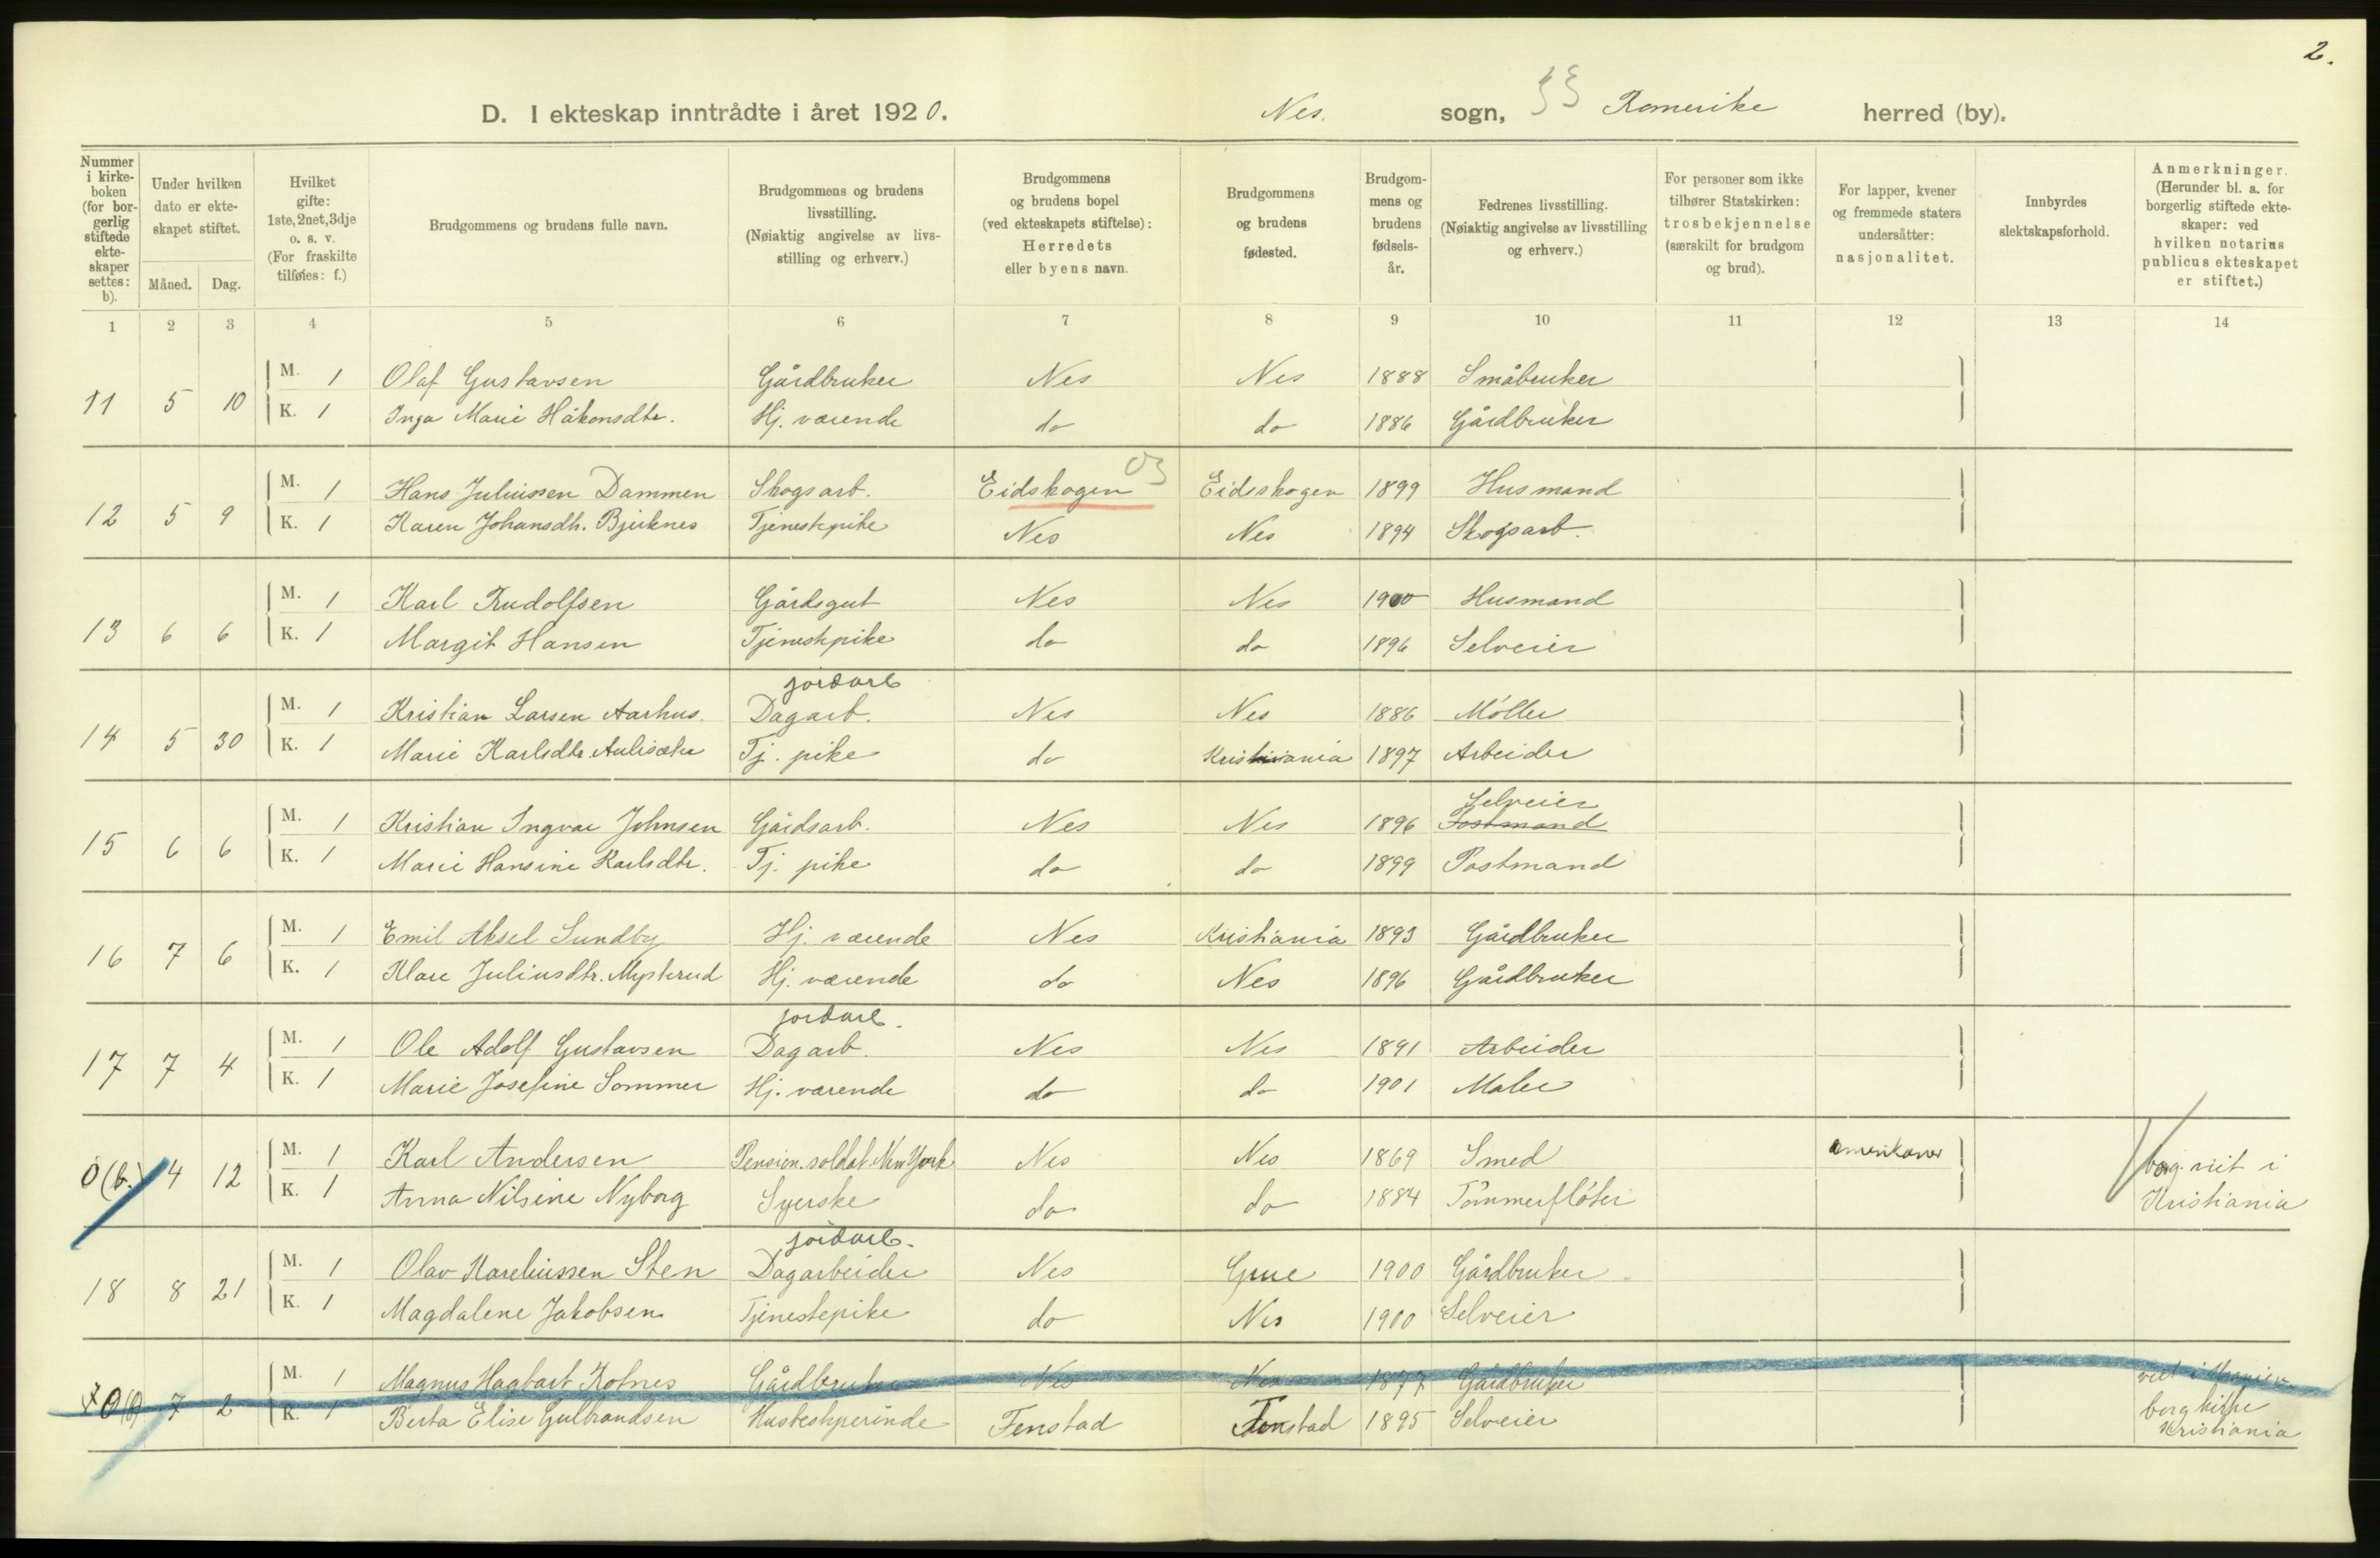 2.
D. I ekteskap inntrådte i året 1920. Nes. sogn, Romerike herred (by).
Nummer i kirkeboken (for borgerlig stiftede ekteskaper settes: b).
Under hvilken dato er ekteskapet stiftet.
Måned. Dag.
Hvilket gifte: 1ste, 2net, 3dje o. s. v. (For fraskilte tilføies: f.)
Brudgommens og brudens fulle navn.
Brudgommens og brudens livsstilling. (Nøiaktig angivelse av livsstilling og erhverv.)
Brudgommens og brudens bopel (ved ekteskapets stiftelse): Herredets eller byens navn.
Brudgommens og brudens fødested.
Brudgommens og brudens fødselsår.
Fedrenes livsstilling. (Nøiaktig angivelse av livsstilling og erhverv.)
For personer som ikke tilhører Statskirken: trosbekjennelse (særskilt for brudgom og brud).
For lapper, kvener og fremmede staters undersåtter: nasjonalitet.
Innbyrdes slektskapsforhold.
Anmerkninger. (Herunder bl. a. for borgerlig stiftede ekteskaper: ved hvilken notarius publicus ekteskapet er stiftet.)
1 2 3 4 5 6 7 8 9 10 11 12 13 14
11 5 10 M. 1 Olaf Gustavsen Gårdbruker Nes Nes 1888 Småbruker
K. 1 Inga Marie Håkonsdtr. Hj. værende do do 1886 Gårdbruker
03
12 5 9 M. 1 Hans Juliussen Dammen Skogsarb. Eidskogen Eidskogen 1899 Husmand
K. 1 Karen Johansdtr. Bjerknes Tjenestepike Nes Nes 1894 Skogsarb.
13 6 6 M. 1 Karl Rudolfsen Gårdsgut Nes Nes 1900 Husmand
K. 1 Margit Hansen Tjenestepike do do 1896 Selveier
jordarb
14 5 30 M. 1 Kristian Larsen Aarhus. Dagarb. Nes Nes 1886 Møller
K. 1 Marie Karlsdtr. Aulisæter Tj. pike do Kristiania 1897 Arbeider
Selveier
15 6 6 M. 1 Kristian Ingvar Johnsen Gårdsarb. Nes Nes 1896 Postmand
K. 1 Marie Hansine Karlsdtr. Tj. pike do do 1899 Postmand
16 7 6 M. 1 Emil Aksel Sundby Hj. værende Nes Kristiania 1893 Gårdbruker
K. 1 Klare Juliusdtr. Mysterud Hj. værende do Nes 1896 Gårdbruker
jordarb.
17 7 4 M. 1 Ole Adolf Gustavsen Dagarb. Nes Nes 1891 Arbeider
K. 1 Marie Josefine Sommer Hj. værende do do 1901 Maler
0 (b.) 4 12 M. 1 Karl Andersen Pension. soldat New York Nes Nes 1869 Smed amerikaner borg. viet i
K. 1 Anna Nilsine Nyborg Syerske do do 1884 Tømmerfløter Kristiania
jordarb.
18 8 21 M. 1 Olav Kareliussen Sten Dagarbeider Nes Grue 1900 Gårdbruker
K. 1 Magdalene Jakobsen Tjenestepike do Nes 1900 Selveier
0 (b) 7 2 M. 1 Magnus Hagbart Kotnes Gårdbruker Nes Nes 1877 Gårdbruker viet i
K. 1 Berta Elise Gulbrandsen Husbestyrerinde Fenstad Fenstad 1895 Selveier borg kirke
Kristiania